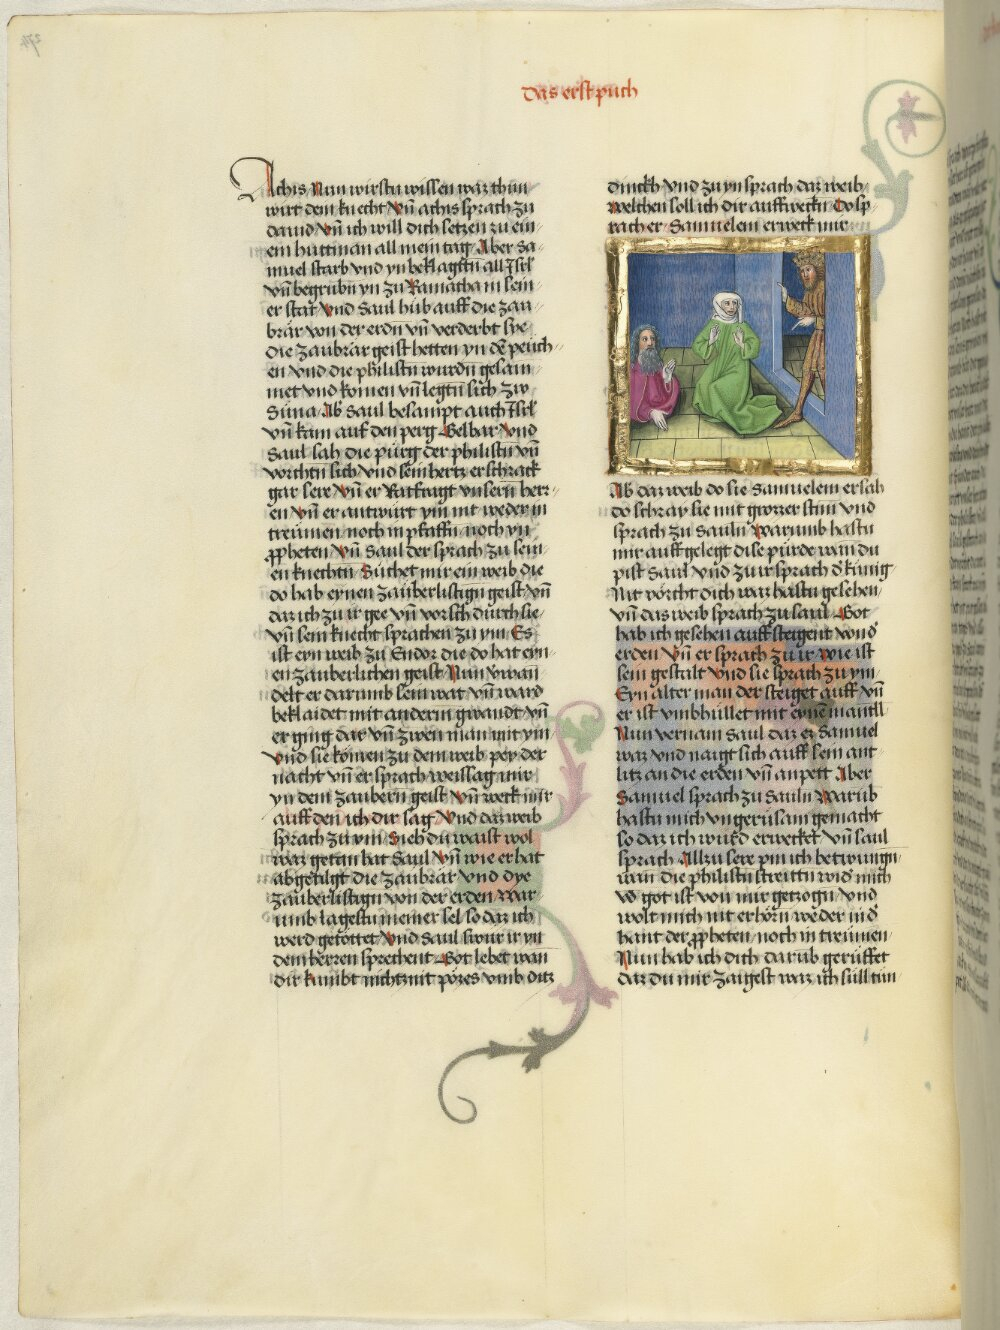 Das erst puch
Achis Nun wirstu wissen waz thun
wirt dem knecht Vn̄ achis sprach zu
dauid Vn̄ ich will dich setzen zu ein
em huttman all mein tag Aber Sa
muel starb vnd yn beklagtn all Isrl
vn̄ begrubn yn zu Ramatha in sein
er stat Vnd Saul hub auff die zau
brar von der erdn vn̄ verderbt sye
die zaubrar geist hetten yn dē peuch
en vnd die philistn wurdn gesam
met vnd komen vn̄ legtn sich zw
Suna Ab Saul besampt auch Isrl
vn̄ kam auf den perg Gelbar Vnd
Saul sah die purg der philistn vn̄
vorchtn sich vnd sein hertz erschrack
gar sere Vn̄ er Ratfragt vnsern herr
en Vn̄ er antwurt ym nit weder in
treumen noch in pfaffn noch yn
ꝓpheten Vn̄ Saul der sprach zu sein
en knechtn Suchet mir ein weib die
do hab eynen zauberlistign geist vn̄
daz ich zu ir gee vn̄ vorsch durch sie
vn̄ sein knecht sprachen zu ym Es
ist eyn weib zu Endor die do hat eyn
en zauberlichen geist Nun vwan
delt er darumb sein wat vn̄ ward
beklaidet mit anderm gwandt vn̄
er ging dar vn̄ zwen man mit ym
Vnd sie komen zu dem weib pey der
nacht vn̄ er sprach weissag mir
yn dem zaubern geist Vn̄ weck mir
auff den ich dir sag Vnd daz weib
sprach zu ym Sieh du waist wol
waz getan hat Saul Vn̄ wie er hat
abgetilgt die zaubrar vnd dye
zauberlistign von der erden War
umb lagestu meiner sel so daz ich
werd getottet Vnd Saul swur ir yn
dem herren sprechent Got lebet wan
dir kumbt nichtz mit pozes vmb ditz
dinckh vnd zu yn sprach daz weib
Welchen soll ich dir auffweckn Do sp
rach er Samuelem erweck mir
Ab daz weib do sie Samuelem ersah
do schray sie mit grozzer stim vnd
sprach zu Sauln Warumb hastu
mir auffgelegt dise purde wan du
pist Saul vnd zu ir sprach d̓ kunig
Nit vorcht dich waz hastu gesehen
vn̄ das weib sprach zu saul Got
hab ich gesehen auffsteigent von d̓
erden Vn̄ er sprach zu ir wie ist
sein gestalt Vnd sie sprach zu ym
Eyn alter man der steiget auff vn̄
er ist vmbhullet mit eynē mantll
Nun vernam Saul daz ez Samuel
waz vnd naigt sich auff sein ant
litz an die erden vn̄ anpett Aber
Samuel sprach zu Sauln Warūb
hastu mich vngerusam gemacht
so daz ich wurd erwecket Vn̄ saul
sprach Allzu sere pin ich betwungn
wan die philistn streittn wid̓ mich
vn̄ got ist von mir getzogn vnd
wolt mich nit erhorn weder in d̓
hant der ꝓpheten noch in treumen
Nun hab ich dich darūb geruffet
daz du mir zaigest waz ich sull tun